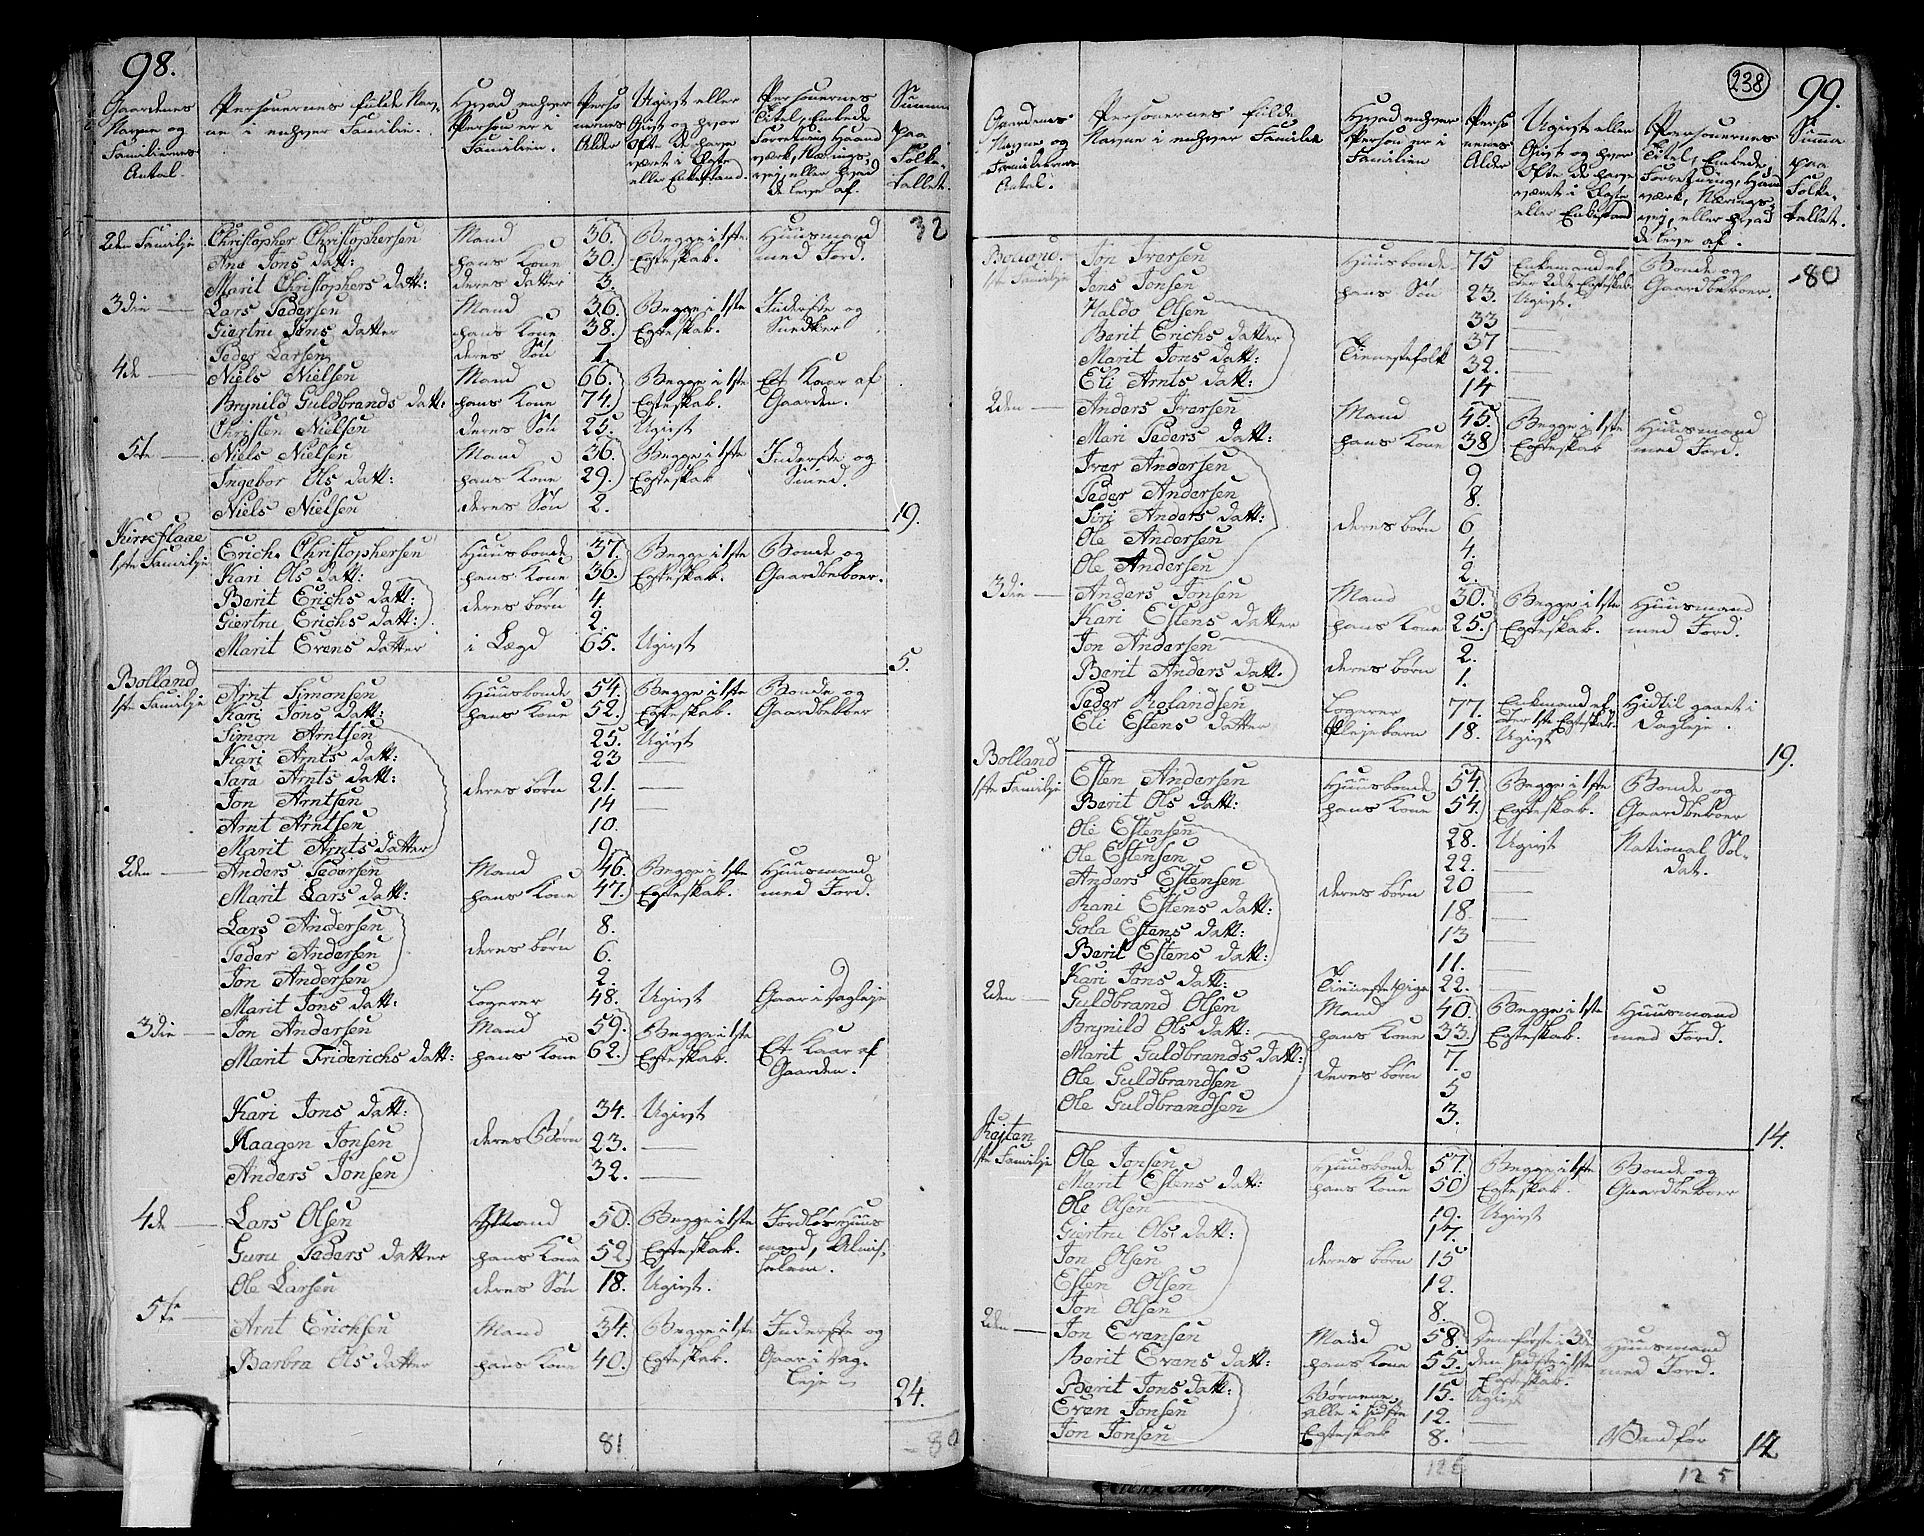 98.
Gaardenes Navne og Familiernes Antal.
Personernes fulde Navne i enhver Familie.
Hvad enhver Person er i Familien.
Personernes Alder
Ugivt eller Givt og hvor Ofte de have været i Egteskab eller Enkestand.
Personernes Titel, Embede Forretning, Haandværk, Næringsvej, eller hvad de leve af.
Summa paa Folketallet.
32
2den Familje Christopher Christophersen Mand 36. Begge i 1ste Huusmand
Ane Jons datt: hans Kone 30. Egteskab. med Jord.
Marit Christophers datt: deres datter 3.
3die — Lars Pedersen Mand 36. Begge i 1ste Inderste og
Giertru Jens datter hans Kone 38. Egteskab. Snedker
Peder Larsen deres Søn 1.
4de — Niels Nielsen Mand 66. Begge i 1ste Et Kaar af
Brynild Guldbrands datt: hans Kone 74. Egteskab. Gaarden.
Christen Nielsen deres Søn 25. Ugivt
5te — Niels Nielsen Mand 36. Begge i 1ste Inderste og
Ingebor Ols datt: hans Kone 29. Egteskab Smed.
Niels Nielsen deres Søn 2. 19.
Kirkflaae
1ste Familje Erich Christophersen Huusbonde 37. Begge i 1ste Bonde og
Kari Ols datt: hans Kone 36. Egteskab. Gaardbeboer.
Berit Erichs datt: deres børn 4.
Giertru Erichs datt: 2.
Marit Evens datter i Lægd 65. Ugivt 5.
Bolland
1ste Familje Arnt Simonsen Huusbonde 54. Begge i 1ste Bonde og
Kari Jons datt: hans Kone 52. Egteskab. Gaardbeboer
Simon Arntsen 25. Ugivt
Kari Arnts datt: 23 —
Sara Arnts datt: deres børn 21. —
Jon Arntsen 14 —
Arnt Arntsen 10.
Marit Arnts datter 9
2den — Anders Pedersen Mand 46. Begge i 1ste Huusmand
Marit Lars datt: hans Kone 47. Egteskab. med Jord.
Lars Andersen 8.
Peder Andersen deres børn 6.
Jon Andersen 2.
Marit Jons datt: Logerer 48. Ugivt Gaar i Dagleje
3die — Jon Andersen Mand 59. Begge i 1ste Et Kaar af
Marit Friderichs datt: hans Kone 62. Egteskab. Gaarden.
Kari Jons datt: 34. Ugivt
Haagen Jonsen deres Børn 23. —
Anders Jonsen 32. —
4de — Lars Olsen Mand 50. Begge i 1ste Jordløs Huus
Guru Peders datter hans Kone 52. Egteskab. mand, Almis
Ole Larsen deres Søn 18. Ugivt. selem.
5te — Arnt Erichsen Mand 34. Begge i 1ste Inderste og
Barbra Ols datter hans Kone 40. Egteskab. Gaar i Dag-
leje 24.
81
80
238
99.
Gaardenes Navne og Familiernes Antal.
Personernes fulde Navne i enhver Familie
Hvad enhver Person er i Familien
Personernes Alder
Ugivt eller Givt og hvor Ofte de have været i Egteskab eller Enkestand
Personernes Titel, Embede, Forretning, Haandværk, Næringsvej, eller hvad de leve af.
Summa paa Folketallet.
80
1ste Familje Jon Iversen Huusbonde 75 Enkemand ef- Bonde og
Jens Jonsen hans Søn 23. Ugivt. Gaardbeboer.
Haldo Olsen 33 —
Berit Erichs datter 37 —
Marit Jons datt: Tienestefolk 32. —
Eli Arnts datt: 14 —
2den — Anders Iversen Mand 45. Begge i 1ste Huusmand
Mari Peders datt: hans Kone 38 Egteskab med Jord.
Iver Andersen 9
Peder Andersen 8.
Siri Anders datt: deres børn 6
Ole Andersen 4.
Ole Andersen 2.
3die — Anders Jonsen Mand 30. Begge i 1ste Huusmand
Kari Estens datter hans Kone 25. Egteskab. med Jord.
Jon Andersen 2.
Berit Anders datt. deres børn 1.
Peder Rolandsen Logerer 77. Enkemand ef- Hidtil gaaet i
ter 1ste Egteskab.
Eli Estens datter Plejebarn 18. Ugivt Dagleje.
Bolland 19.
1ste Familje Esten Andersen Huusbonde 54. Begge i 1ste Bonde og
Berit Ols datt: hans Kone 54. Egteskab. Gaardbeboer
Ole Estensen 28. Ugivt National Sol-
Ole Estensen 22. — dat.
Anders Estensen 20 —
Rani Estens datt: deres børn 18. —
Gola Estens datt: 13 —
Berit Estens datt: 11. —
Kari Jons datt: Tienestepige 22. —
2den — Guldbrand Olsen Mand 40. Begge i 1ste Huusmand
Brynild Ols datt: hans Kone 33. Egteskab. med Jord.
Marit Guldbrands datt: 7.
Ole Guldbrandsen deres børn 5
Ole Guldbrandsen 3.
14.
1ste Familje Ole Jonsen Huusbonde 57. Begge i 1ste Bonde og
Marit Estens datt: hans Kone 50 Egteskab. Gaardbeboer
Ole Olsen 19. Ugivt
Giertru Ols datt: 17.
Jon Olsen deres børn 15
Esten Olsen 12.
Jon Olsen 8.
2den — Jon Evensen Mand 58. Den første i 3die Huusmand
Berit Evens datt: hans Kone 55. den sidste i 1ste med Jord.
Egteskab.
Berit Jons datt: Børnene 15. Ugivt
Even Jonsen alle i sidste 12. —
Jon Jonsen Egteskab 8. — Vandfør
14
126
125